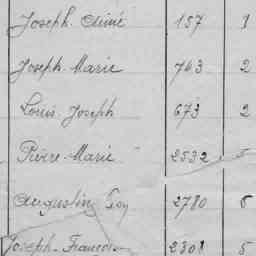 Joseph Aimé 157 1
Joseph Marie 743 2
Louis Joseph 673 2
Pierre Marie 2532 5
Augustin 2780 5
Joseph François 2308 5